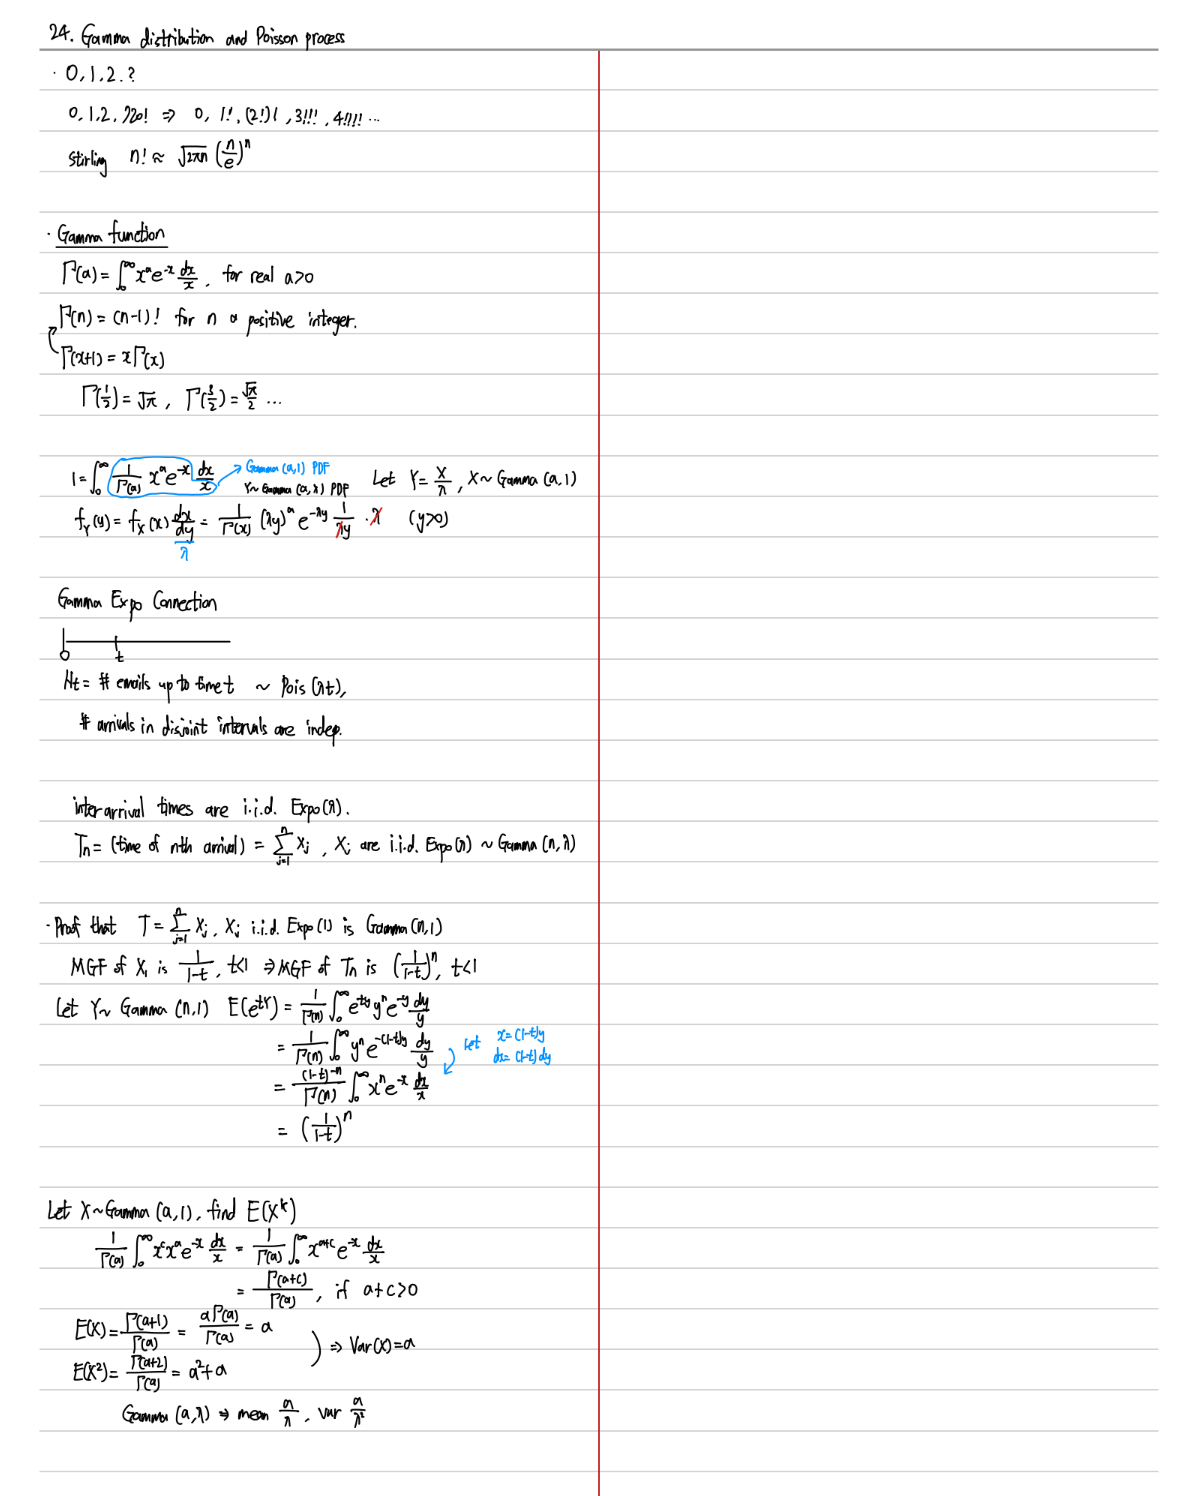 24. Gamma distribution and Poisson process
· 0, 1, 2, ?
0, 1, 2, 720! ⇒ 0, 1!, (2!)!, 3!!!, 4!!!! ...
Stirling n! ≈ √2πn (n/e)^n
· Gamma function
Γ(a) = ∫_0^∞ x^a e^-x dx/x, for real a>0
Γ(n) = (n-1)! for n a positive integer.
Γ(x+1) = xΓ(x)
Γ(1/2) = √π, Γ(3/2) = √π/2 ...
1 = ∫_0^∞ 1/Γ(a) x^a e^-x dx/x → Gamma (a,1) PDF
Y ~ Gamma (a, λ) PDF
Let Y = X/λ, X ~ Gamma (a,1)
f_Y(y) = f_X(x) dx/dy = 1/Γ(x) (λy)^a e^-λy 1/λy · λ (y>0)
λ
Gamma Expo Connection
0 t
Nt = # emails up to time t ~ Pois (λt),
# arrivals in disjoint intervals are indep.
interarrival times are i.i.d. Expo(λ).
Tn = (time of nth arrival) = Σ_{j=1}^n Xj, Xj are i.i.d. Expo(λ) ~ Gamma (n, λ)
· Proof that T = Σ_{j=1}^n Xj, Xj i.i.d. Expo(1) is Gamma(n,1)
MGF of X1 is 1/(1-t), t<1 ⇒ MGF of Tn is (1/(1-t))^n, t<1
Let Y ~ Gamma (n,1) E(e^tY) = 1/Γ(n) ∫_0^∞ e^ty y^n e^-y dy/y
= 1/Γ(n) ∫_0^∞ y^n e^-(1-t)y dy/y
Let x = (1-t)y
dx = (1-t)dy
= (1-t)^-n/Γ(n) ∫_0^∞ x^n e^-x dx/x
= (1/(1-t))^n
Let X ~ Gamma (a,1), find E(X^k)
1/Γ(a) ∫_0^∞ x^c x^a e^-x dx/x = 1/Γ(a) ∫_0^∞ x^a+c e^-x dx/x
= Γ(a+c)/Γ(a), if a+c>0
E(X) = Γ(a+1)/Γ(a) = aΓ(a)/Γ(a) = a
) ⇒ Var(X) = a
E(X²) = Γ(a+2)/Γ(a) = a²+a
Gamma (a,λ) ⇒ mean a/λ, var a/λ²